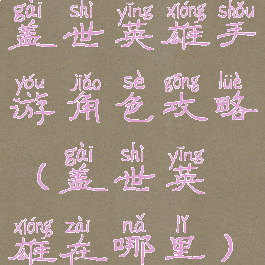 gài shì yīng xióng shǒu
盖世英雄手
yóu jiǎo sè gōng lüè
游角色攻略
gài shì yīng
（盖世英
xióng zài nǎ lǐ
雄在哪里）